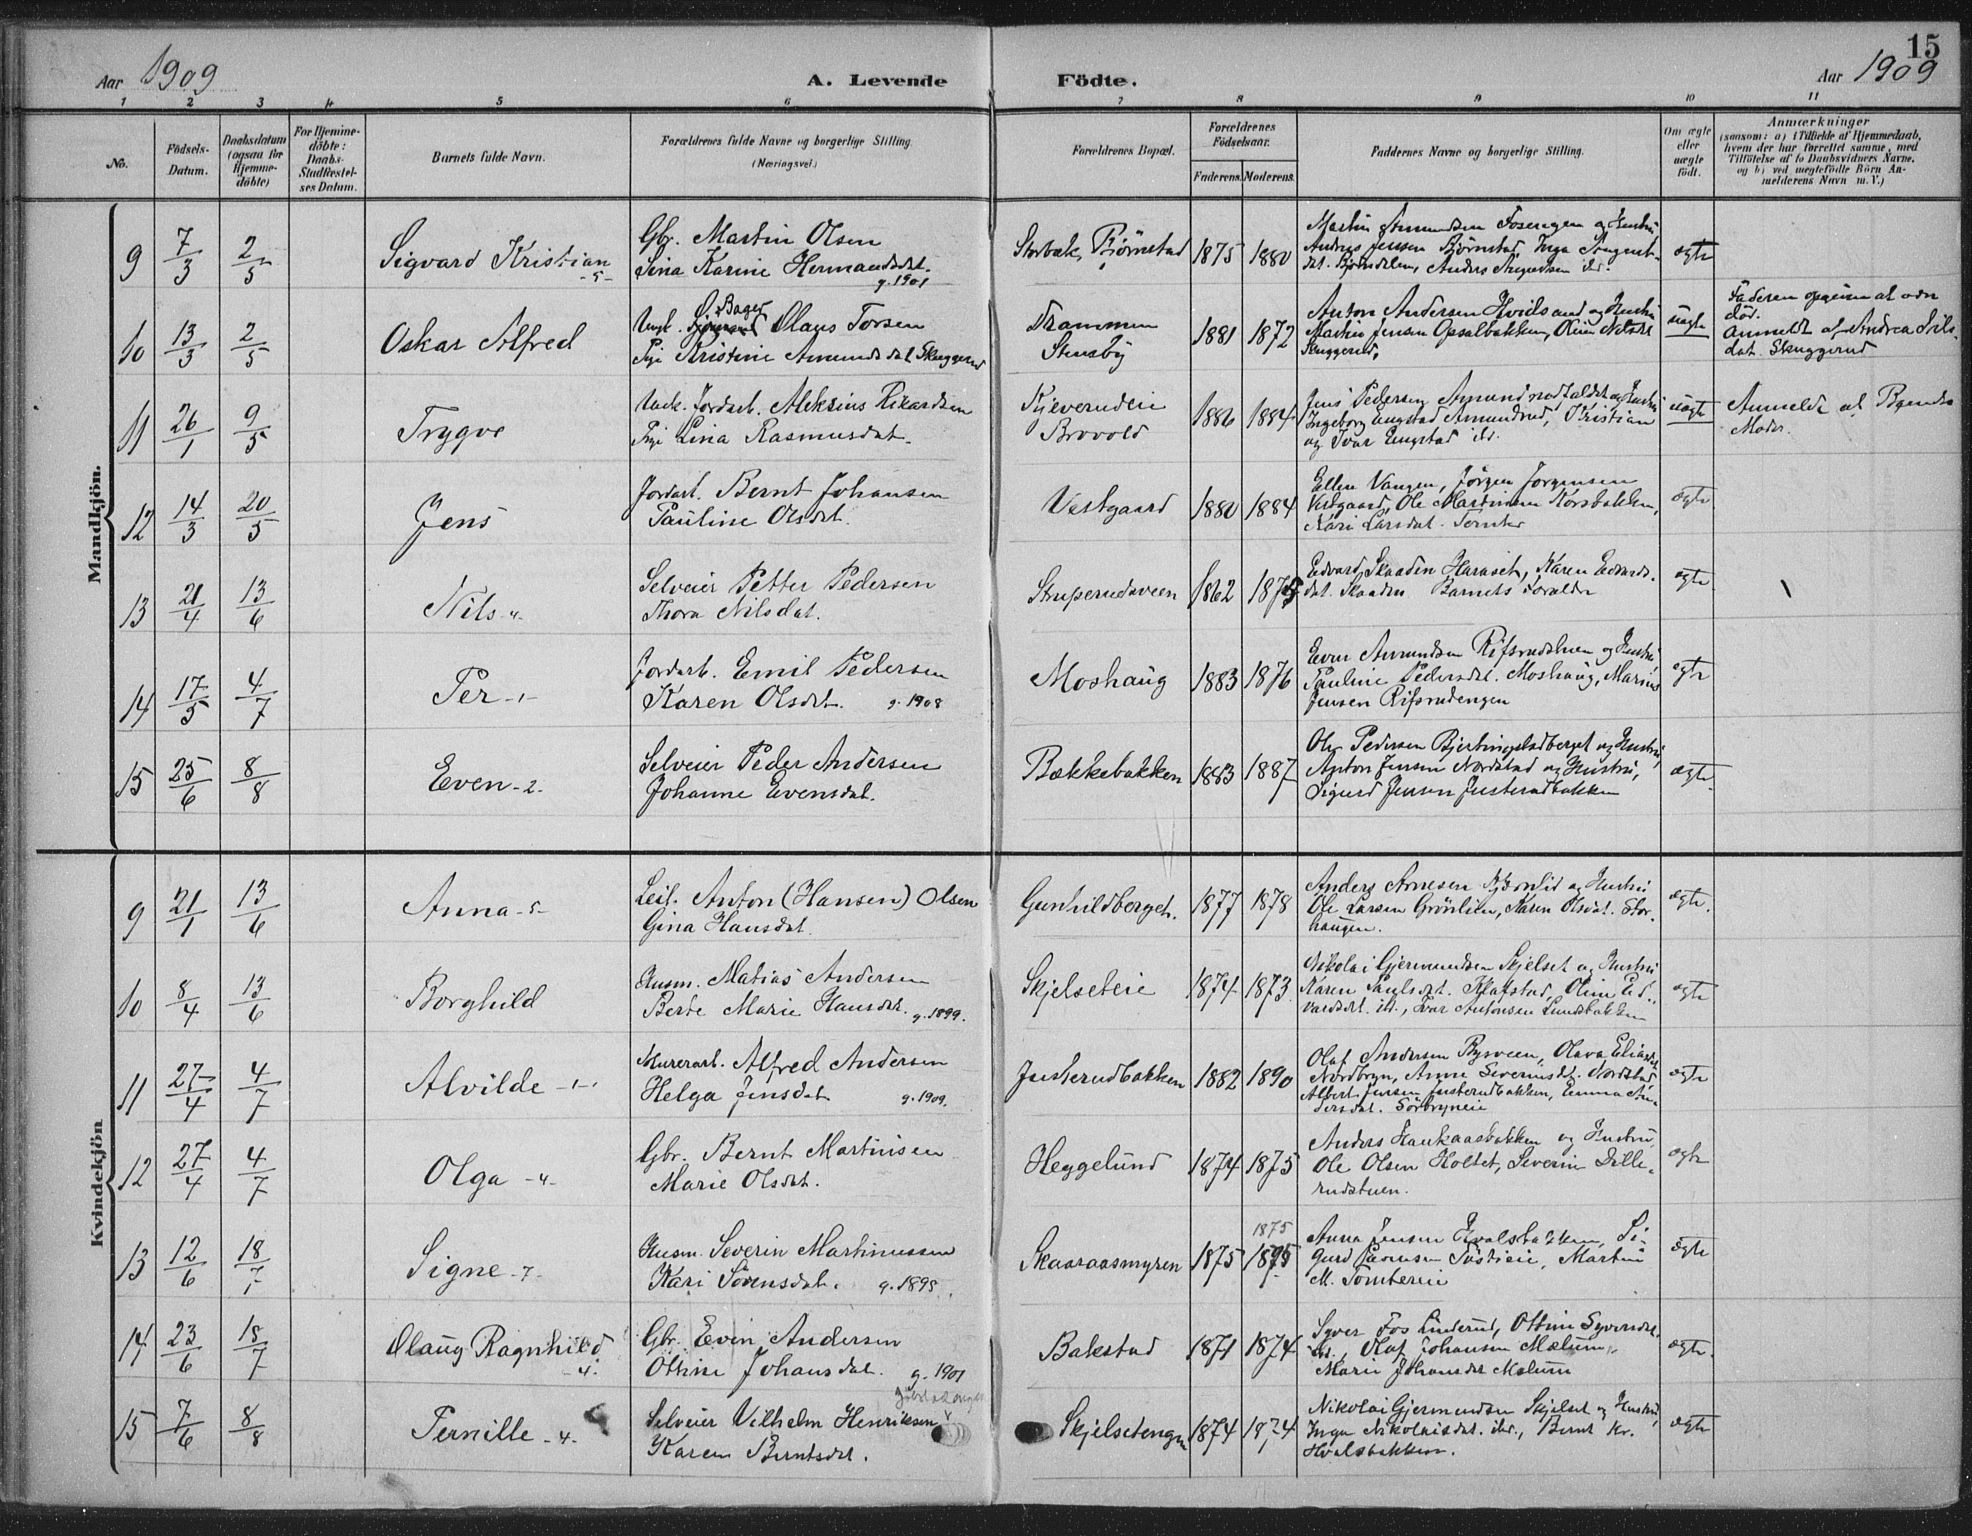 15
Aar 1909 A. Levende Födte. Aar 1909
1 2 3 4 5 6 7 8 9 10 11
No. Födsels-Datum. Daabsdatum (ogsaa for Hjemme-döbte) For Hjemme-döbte: Daabs-Stadfestel-ses Datum. Barnets fulde Navn. Forældrenes fulde Navne og borgerlige Stilling. (Næringsvei.) Forældrenes Bopæl. Forældrenes Födselsaar. Faderens. Moderens. Faddernes Navne og borgerlige Stilling. Om ægte eller uægte födt. Anmærkninger (saasom: a) i Tilfælde af Hjemmedaab, hvem der har forrettet samme, med Tilföielse af to Daabsvidners Navne, og b) ved uægtefödte Börn An-melderens Navn m. V.)
Mandkjön.
9 7/3 2/5 Sigvard Kristian -5-
Gbr. Martin Olsen
Lina Karine Hermandsdat.
g. 1901
Storbæk, Bjørnstad 1875 1880
Martin Amundsen Fosengen og Hustru
Andreas Jensen Bjørnstad, Inga August-
dat. Bjørndalen, Anders Augudsen ibd.
ægte
10 13/3 2/5 Oskar Alfred
Ø. Bager
Ungk. Olaus Torsen
Pige Kristine Amundsdat Skuggerud
Drammen
Stensby
1881 1872
Anton Andersen Hvidsand og Hustru
Martin Jensen Opsalbakken, Oline Nilsdt
Skuggerud,
uægte
Faderen opgiven at være
död.
Anmeldt af Andrea Nils-
dat. Skuggerud
11 26/1 9/5 Trygve
Ungk. Jordarb. Aleksius Rikardsen
Pige Lina Rasmusdat.
Kjeverudeie
Brovold
1886 1884
Jens Pedersen Amundrud og Hustru
Ingeborg Engstad Amundrud, Kristian
og Ivar Engstad ibd.
uægte
Anmeldt af Barnets
Moder.
12 14/3 20/5 Jens
Jordarb. Bernt Johansen
Pauline Olsdat.
Vestgaard 1880 1884
Ellen Vangen, Jörgen Jörgensen
Vestgaard, Ole Martinsen Korsbakken,
Kari Larsdat. Tomter
ægte
13 21/4 13/6 Nils -4-
Selveier Petter Pedersen
Thora Nilsdat.
Struperudsveen 1862 1875
Edvard Skaaden Haraset, Karen Edvards-
dat. Skaaden Barnets Foraldre
ægte
14 17/5 4/7 Per -1-
Jordarb. Emil Pedersen
Karen Olsdat. g. 1908
Moshaug 1883 1876
Even Amundsen Rifsrudstuen og Hustru
Pauline Pedersdat. Moshaug, Marius
Jensen Rifsrudengen
ægte
15 25/6 8/8 Even -2-
Selveier Peder Andersen
Johanne Evensdat.
Bækkebakken 1883 1887
Ole Pedersen Bjertingstadberget og Hustru,
Anton Jensen Nordstad og Hustru,
Sigurd Jensen Justerudbakken
ægte.
Kvindekjön
9 21/1 13/6 Anna -5-
Leil. Anton (Hansen) Olsen
Gina Hansdat.
Gunhildberget. 1877 1878
Anders Arnesen Bjørnlid og Hustru
Ole Larsen Grönlien, Karen Olsdat. Stor-
haugen.
ægte.
10 8/4 13/6 Borghild
Husm. Matias Andersen
Berte Marie Hansdat. g. 1899.
Skjelseteie 1874 1873
Nikolai Gjermundsen Skjelset og Hustru
Karen Paulsdat. Klafstad, Oline Ed-
vardsdt. ibd., Ivar Antonsen Lundsbakken
ægte
11 27/4 4/7 Alvilde -1-
Murerarb. Alfred Andersen
Helga Jensdat g. 1909.
Justerudbakken 1882 1890
Olaf Andersen Bysveen, Olava Eliasdat
Nordbryn, Anne Severinsdt. Nordstad,
Albert Jensen Justerudbakken, Emma An-
dersdat. Sörbryneie
ægte
12 27/4 4/7 Olga -4-
Gbr. Bernt Martinsen
Marie Olsdat.
Heggelund 1874 1875
Anders Haukaasbakken og Hustru,
Ole Olsen Holtet, Severin Lille-
rudstuen.
ægte
13 12/6 18/7 Signe -7-
Husm. Severin Martinussen
Kari Sörensdat. g. 1895.
Skaaraasmyren 1875 1875 1895
Anna Jensen Hvalsbakken, Si-
gurd Tøstieie, Martin
M. Tomtereie
ægte
14 23/6 18/7 Olaug Ragnhild -4-
Gbr. Even Andersen
Ottine Johansdat. g. 1901
Bakstad 1871 1874
Syver Fos Linderud, Ottine Syversdt.
ibd., Olaf Johansen Mælum,
Marie Johansdat Mælum
ægte.
15 7/6 8/8 Pernille -4-
Selveier Vilhelm Henriksen
Karen Berntsdat.
Skjelsetengen 1874 1874
Nikolai Gjermundsen Skjelset og Hustru,
Inga Nikolaisdat. ibd., Bernt Kr.
Hvalsbakken.
ægte